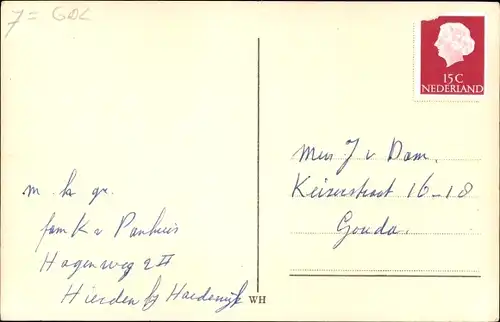 7=
15 C
NEDERLAND
Mw J v Dam.
Keizerstraat 16-18
Gouda.
m. hr gr.
fam K v Panhuis
Hogenweg 2 II
Hierden bij Harderwijk
WH